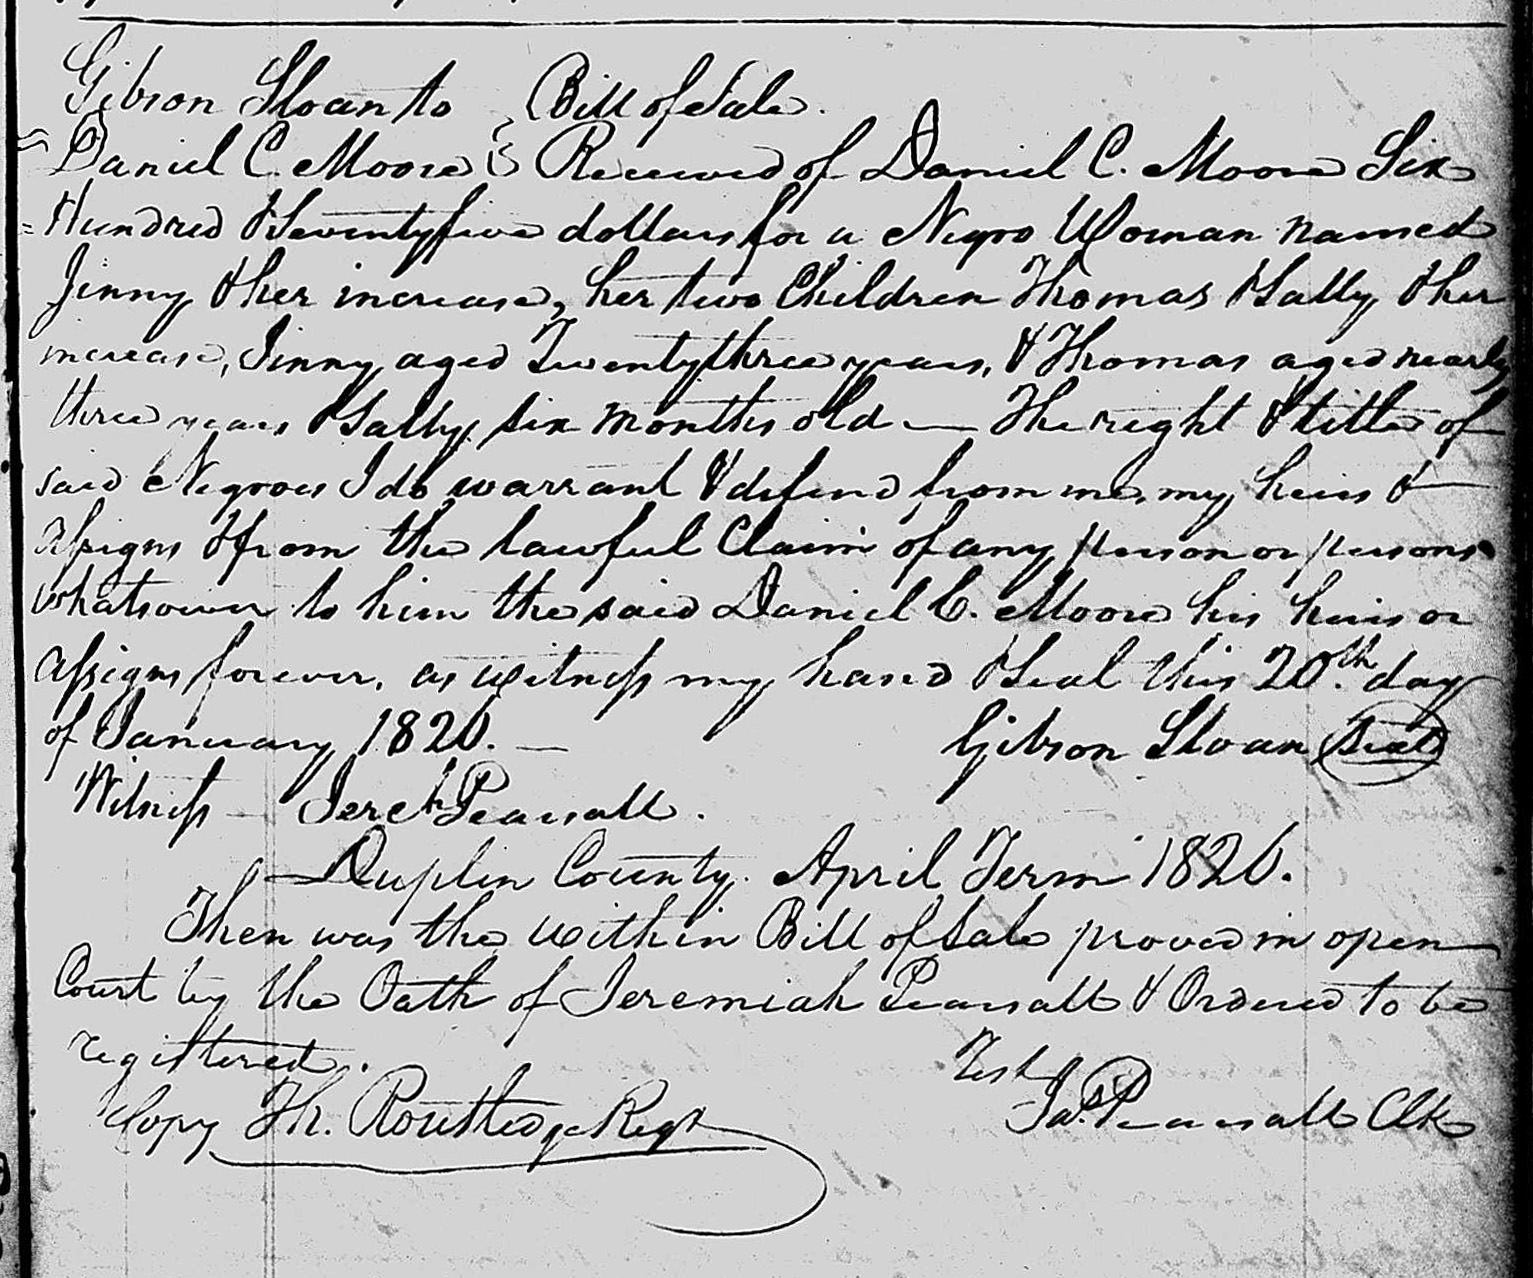 Gibson Sloan to } Bill of Sale.
Daniel C. Moore } Received of Daniel C. Moore Six
Hundred & Seventyfive dollars for a Negro Woman named
Jinny & her increase, her two Children Thomas & Sally & her
increase, Jinny aged Twentythree years, & Thomas aged nearly
three years & Sally six months old — The right & title of
said Negroes I do warrant & defend from me, my heirs &
assigns & from the lawful Claim of any person or persons
whatsoever to him the said Daniel C. Moore his heirs or
assigns forever, as witness my hand & Seal this 20.th day
of January 1820. — Gibson Sloan Seal
Witness — Jereh Pearsall.
Duplin County. April Term 1820.
Then was the within Bill of Sale proved in open
Court by the Oath of Jeremiah Pearsall & Ordered to be
registered. Test
Copy Th. Routledge Regr Jas. Pearsall Clk